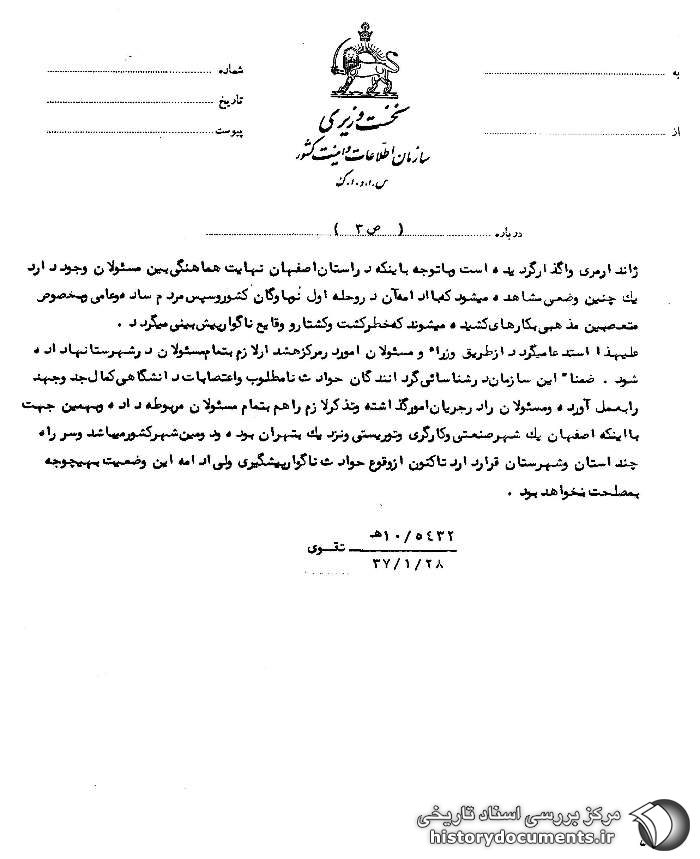 به
شماره
تاریخ
از
پیوست
نخست وزیری
سازمان اطلاعات و امنیت کشور
س.ا.و.ا.ک
درباره ( ص ۳ )
ژاندارمری واگذارگردیده است وباتوجه باینکه دراستان اصفهان نهایت هماهنگی بین مسئولان وجود دارد
یك چنین وضعی مشاهده میشود که باادامه آن دروحله اول نوباوگان کشوروسپس مردم ساده وعامی وبخصوص
متعصبین مذهبی بکارهای کشیده میشوند که خطرکشت وکشتارو وقایع ناگوارپیش بینی میگردد .
علیهذا استدعامیگردد ازطریق وزراء و مسئولان اموردرمرکزهشدارلازم بتمام مسئولان درشهرستانهاداده
شود . ضمنا" این سازمان درشناسائی گردانندگان حوادث نامطلوب واعتصابات دانشگاهی کمال جدوجهد
رابعمل آورده ومسئولان رادرجریان امورگذاشته وتذکرلازم راهم بتمام مسئولان مربوطه داده وبهمین جهت
بااینکه اصفهان یك شهرصنعتی وکارگری وتوریستی ونزدیك بتهران بوده ودومین شهرکشورمیباشد وسرراه
چنداستان وشهرستان قراردارد تاکنون ازوقوع حوادث ناگوارپیشگیری ولی ادامه این وضعیت بهیچوجه
بمصلحت نخواهدبود .
۱۰/۵۴۳۲هـ
تقوی
۳۷/۱/۲۸
مرکز بررسی اسناد تاریخی
historydocuments.ir